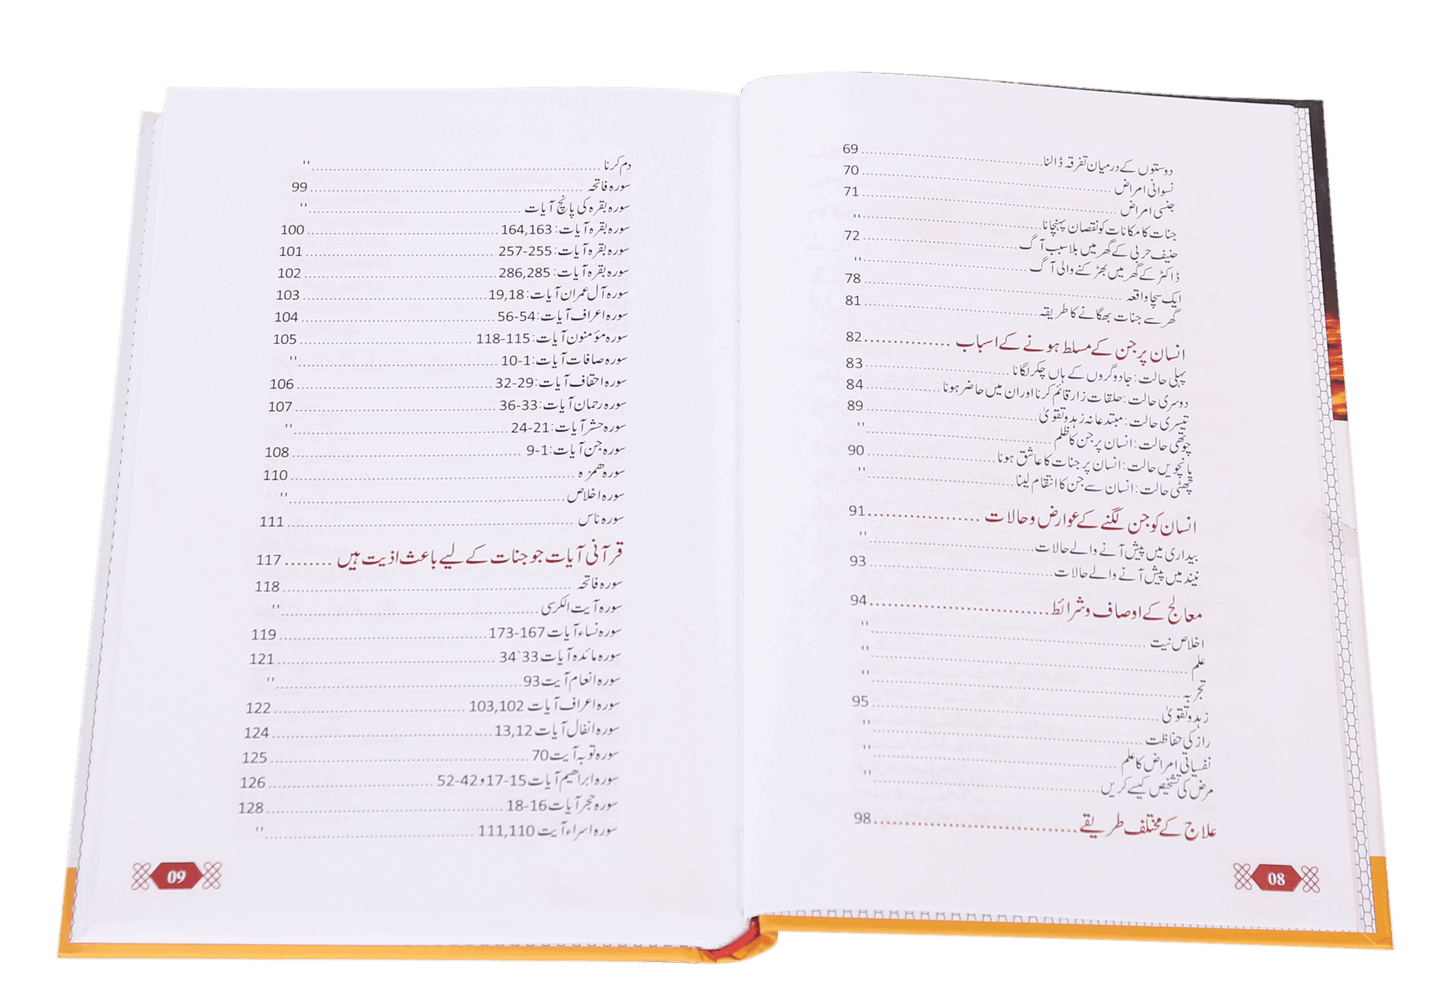 دوستوں کے درمیان تفرقہ ڈالنا 69
نسوانی امراض 70
جنسی امراض 71
جنات کا مکانات کو نقصان پہنچانا "
حنیف حربی کے گھر میں بلا سبب آگ 72
ڈاکٹر کے گھر میں بھڑکنے والی آگ "
ایک سچا واقعہ 78
گھر سے جنات بھگانے کا طریقہ 81
انسان پر جن کے مسلط ہونے کے اسباب 82
پہلی حالت: جادوگروں کے ہاں چکر لگانا 83
دوسری حالت: حلقات زار قائم کرنا اور ان میں حاضر ہونا 84
تیسری حالت: مبتدعانہ زہد و تقویٰ 89
چوتھی حالت: انسان پر جن کا ظلم "
پانچویں حالت: انسان پر جنات کا عاشق ہونا 90
چھٹی حالت: انسان سے جن کا انتقام لینا "
انسان کو جن لگنے کے عوارض و حالات 91
بیداری میں پیش آنے والے حالات "
نیند میں پیش آنے والے حالات 93
معالج کے اوصاف و شرائط 94
اخلاص نیت "
علم "
تجربہ "
زہد و تقویٰ 95
راز کی حفاظت "
نفسیاتی امراض کا علم "
مرض کی تشخیص کیسے کریں "
علاج کے مختلف طریقے 98
08
دم کرنا "
سورہ فاتحہ 99
سورہ بقرہ کی پانچ آیات "
سورہ بقرہ آیات: 164,163 100
سورہ بقرہ آیات: 255-257 101
سورہ بقرہ آیات: 286,285 102
سورہ آل عمران آیات: 19,18 103
سورہ اعراف آیات: 54-56 104
سورہ مؤمنون آیات: 115-118 105
سورہ صافات آیات: 1-10 "
سورہ احقاف آیات: 29-32 106
سورہ رحمان آیات: 33-36 107
سورہ حشر آیات: 21-24 "
سورہ جن آیات: 1-9 108
سورہ ھمزہ 110
سورہ اخلاص "
سورہ ناس 111
قرآنی آیات جو جنات کے لیے باعث اذیت ہیں 117
سورہ فاتحہ 118
سورہ آیت الکرسی "
سورہ نساء آیات 167-173 119
سورہ مائدہ آیات 33`34 121
سورہ انعام آیت 93 "
سورہ اعراف آیات 103,102 122
سورہ انفال آیات 13,12 124
سورہ توبہ آیت 70 125
سورہ ابراھیم آیات 15-17 و 42-52 126
سورہ حجر آیات 16-18 128
سورہ اسراء آیت 111,110 "
09